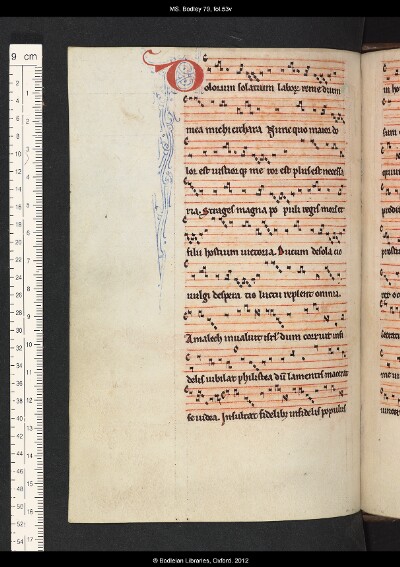 MS. Bodley 79, fol. 53v
9 cm
Dolorum solatium labor remedium
mea michi cithara Nunc quo maior do
lor est iustior que me ror est plus est necessa
ria. Strages magna po puli regis mors et
filii hostium victoria. Ducum desola tio
vulgi despera tio luctu replent omnia.
Amalech invaluit isrl dum corruit infi
delis iubilat philistea dum lamentis macerat
se iudea. Insultat fidelibus infidelis populus
© Bodleian Libraries, Oxford, 2012